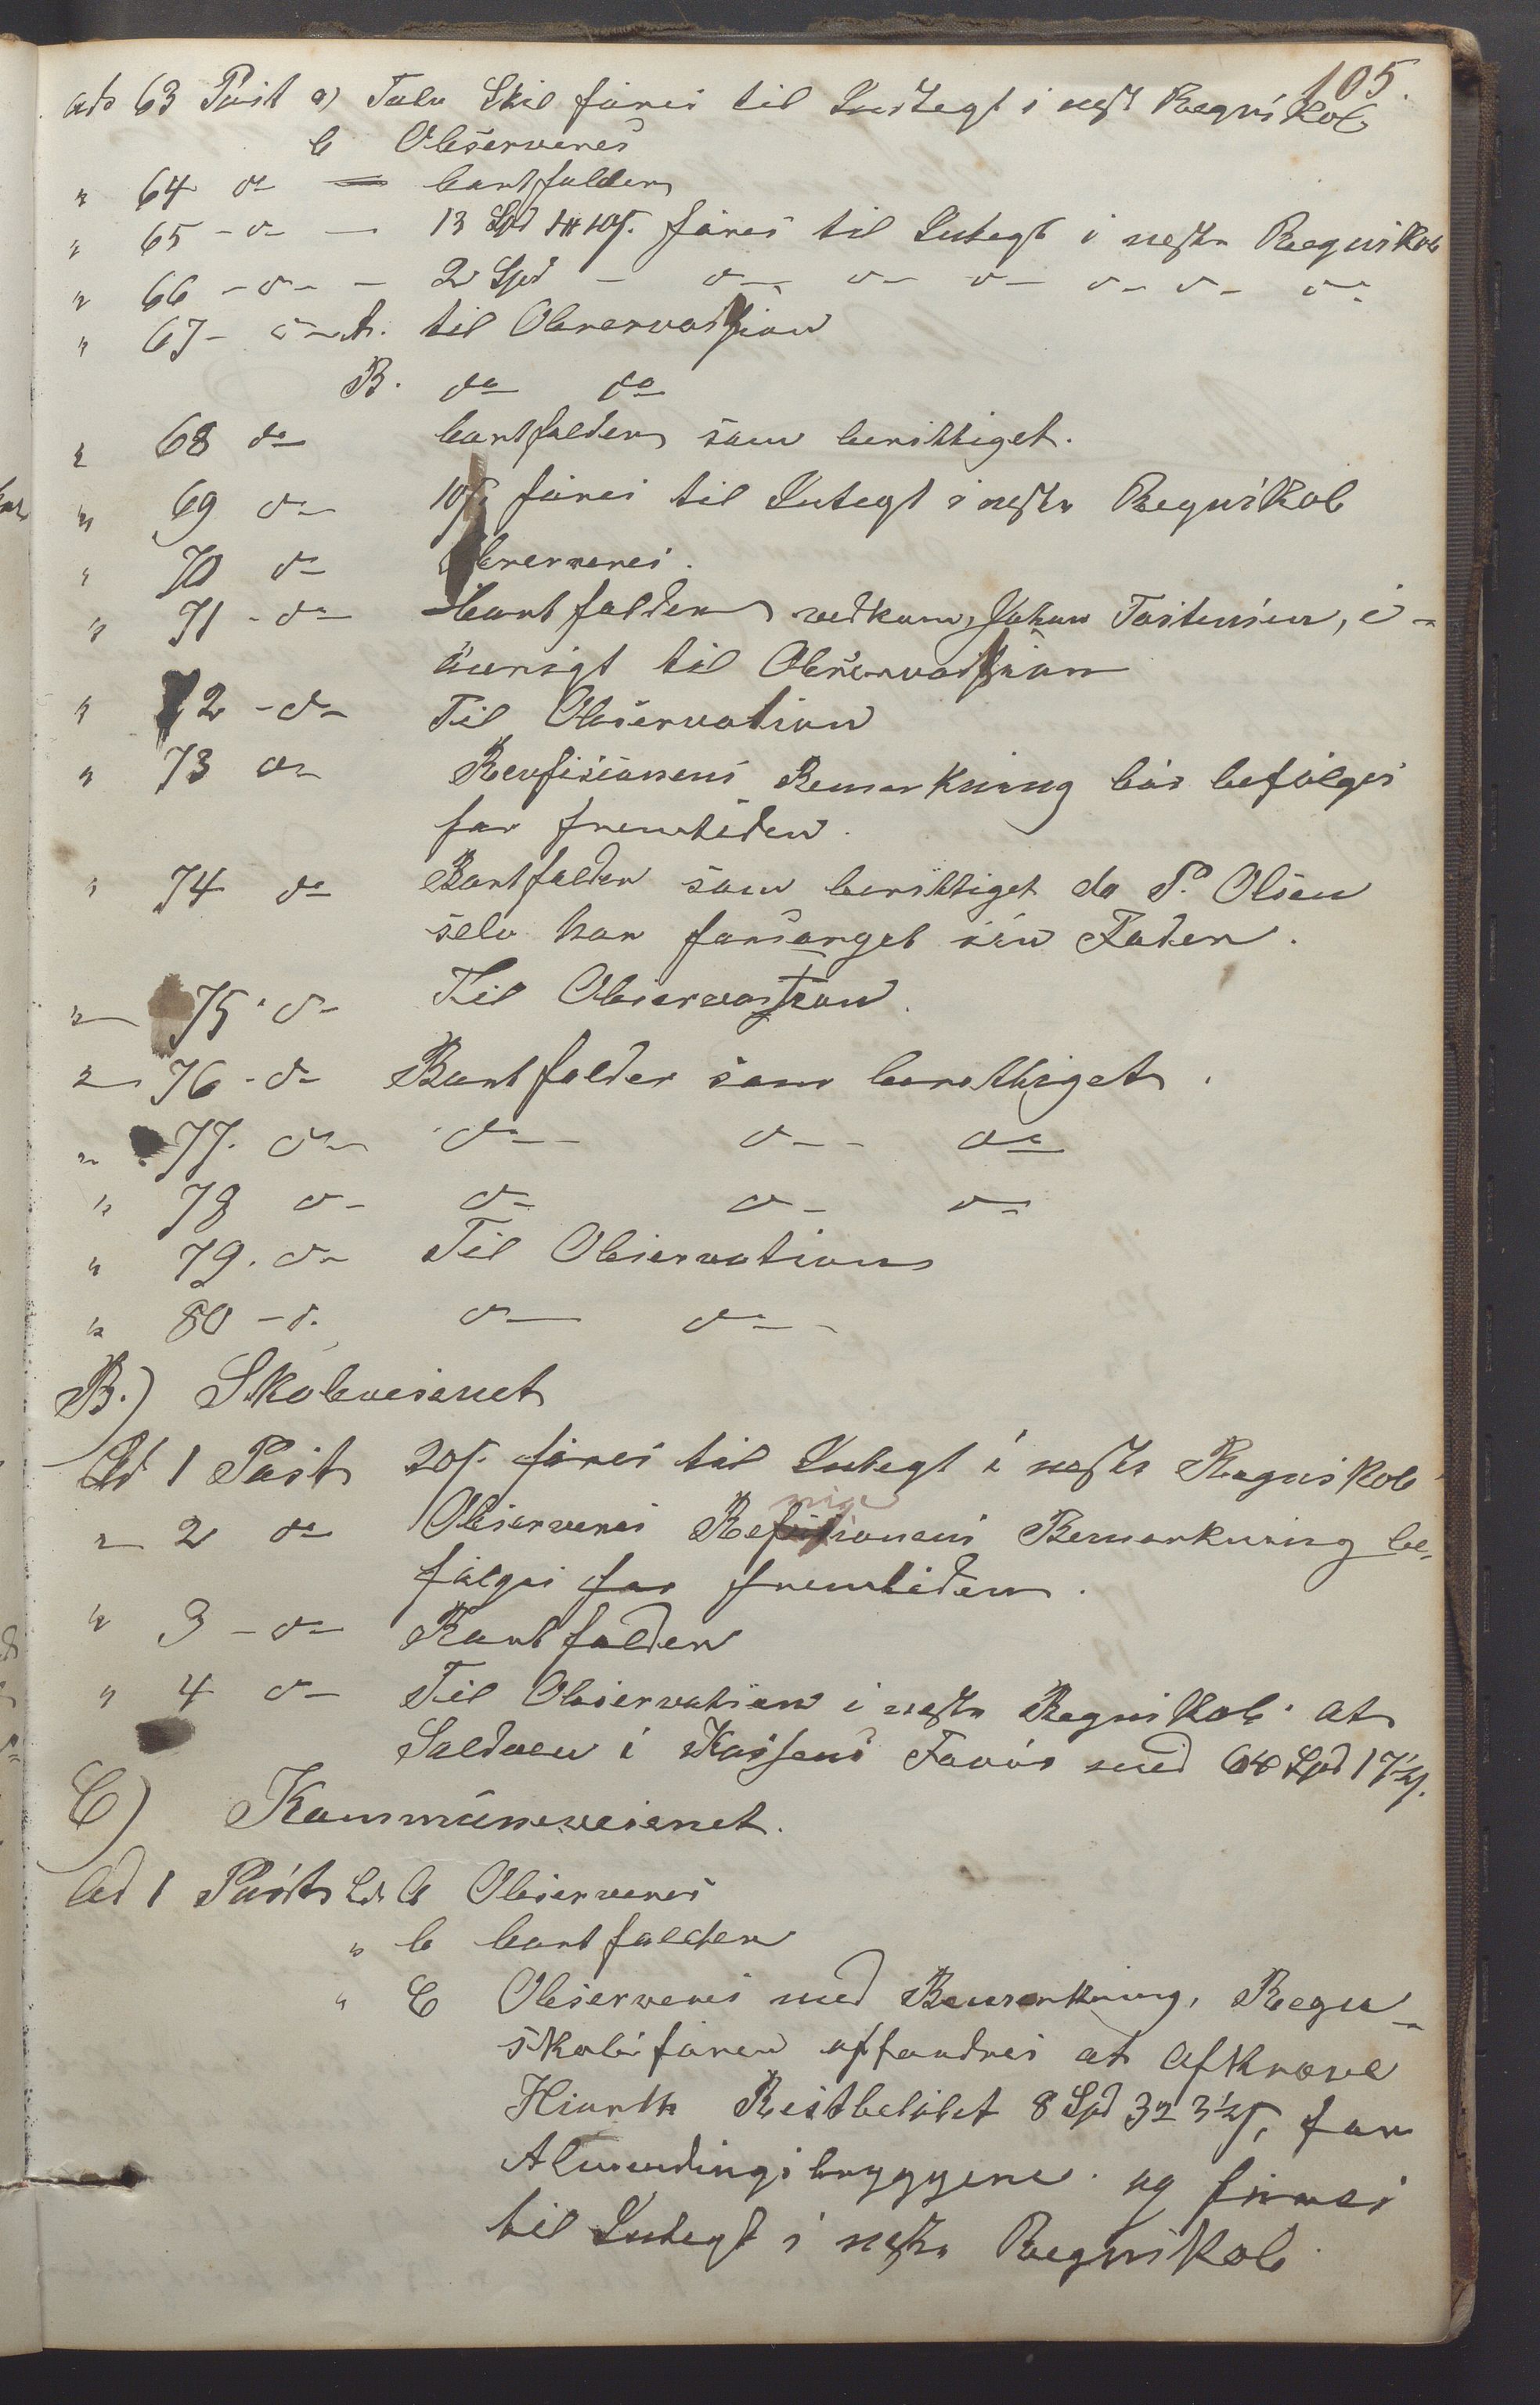 105.
ad 63 Post a) Tolv Skil føres til Indtegt i nest Regnskab
b Observeres
" 64 do — bortfalder
" 65 - do - — 13 Spd 1 # 10 s. føres til Indtegt i neste Regnskab
" 66 - do - — 2 Spd — do do do do do do
" 67 - do A. til Observastion
B. do do
" 68 do bortfalder som berigtiget.
" 69 do 10 s. føres til Indtegt i neste Regnskab
" 70 do Observeres.
" 71 - do Bortfalder vedkom, Johan Tostensen, i-
øvrigt til Observastion
" 72 - do Til Observation
" 73 do Revisionens Bemærkning bør befølges
for fremtiden.
" 74 do Bortfalder som berigtiget da P. Olsen
selv har forsørget sin Fader.
" 75 - do Til Observastion.
" 76 - do Bortfalder som berettiget.
" 77. do do do do
" 78 do do do do
" 79. do Til Observation
" 80 - d. do do
B.) Skolevesenet
Ad 1 Post 20 s. føres til Indtegt i neste Regnskab
" 2 do Observeres Revisionens Bemærkning be-
følges for fremtiden.
" 3 - do Bortfalder
" 4 do Til Observation i neste Regnskab at
Saldoen i Kassens Favør med 64 Spd 17½ s.
C) Kommunevesenet.
Ad 1 Post Ltr A Observeres
" b bortfalder
" C Observeres med Bemærkning, Regn-
skabsføren opfordres at afkræve
Hiorth Restbeløbet 8 Spd 3 # 3½ s, for
Almendingsbryggene og føres
til Indtegt i neste Regnskab